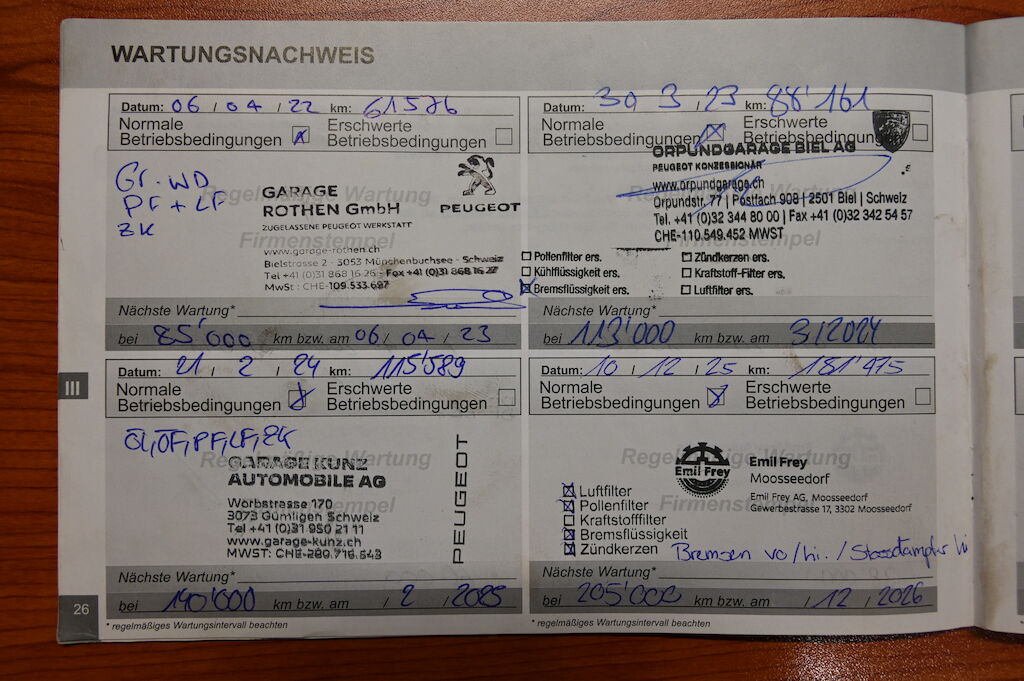 WARTUNGSNACHWEIS
Datum: 06 / 04 / 22 km: 61576
Normale Betriebsbedingungen
Erschwerte Betriebsbedingungen
Gr. WD
PF + LF
ZK
Regelmäßige Wartung
Firmenstempel
GARAGE
ROTHEN GmbH
ZUGELASSENE PEUGEOT WERKSTATT
PEUGEOT
www.garage-rothen.ch
Bielstrasse 2 - 3053 Münchenbuchsee - Schweiz
Tel +41 (0)31 868 16 26 - Fax +41 (0)31 868 16 27
MwSt : CHE-109.533.697
Nächste Wartung*
bei 85'000 km bzw. am 06 / 04 / 23
Datum: 30 3 / 23 km: 88'161
Normale Betriebsbedingungen
Erschwerte Betriebsbedingungen
ORPUNDGARAGE BIEL AG
PEUGEOT KONZESSIONÄR
www.orpundgarage.ch
Orpundstr. 77 | Postfach 908 | 2501 Biel | Schweiz
Tel. +41 (0)32 344 80 00 | Fax +41 (0)32 342 54 57
CHE-110.549.452 MWST
Firmenstempel
Pollenfilter ers.
Kühlflüssigkeit ers.
Bremsflüssigkeit ers.
Zündkerzen ers.
Kraftstoff-Filter ers.
Luftfilter ers.
Nächste Wartung*
bei 113'000 km bzw. am 3/2024
III
Datum: 21 / 2 / 24 km: 115'589
Normale Betriebsbedingungen
Erschwerte Betriebsbedingungen
Öl, ÖF, PF, LF, ZK
Regelmäßige Wartung
GARAGE KUNZ
AUTOMOBILE AG
Worbstrasse 170
3073 Gümligen Schweiz
Tel +41 (0)31 950 21 11
www.garage-kunz.ch
MWST: CHE-289.716.543
PEUGEOT
Nächste Wartung*
bei 140'000 km bzw. am / 2 / 2025
Datum: 10 / 12 / 25 km: 181'475
Normale Betriebsbedingungen
Erschwerte Betriebsbedingungen
Regelmäßige Wartung
Firmenstempel
Emil Frey
Emil Frey
Moosseedorf
Emil Frey AG, Moosseedorf
Gewerbestrasse 17, 3302 Moosseedorf
Luftfilter
Pollenfilter
Kraftstofffilter
Bremsflüssigkeit
Zündkerzen
Bremsen vo/hi. / Stossdämpfer hi
Nächste Wartung*
bei 205'000 km bzw. am / 12 / 2026
26
* regelmäßiges Wartungsintervall beachten
* regelmäßiges Wartungsintervall beachten